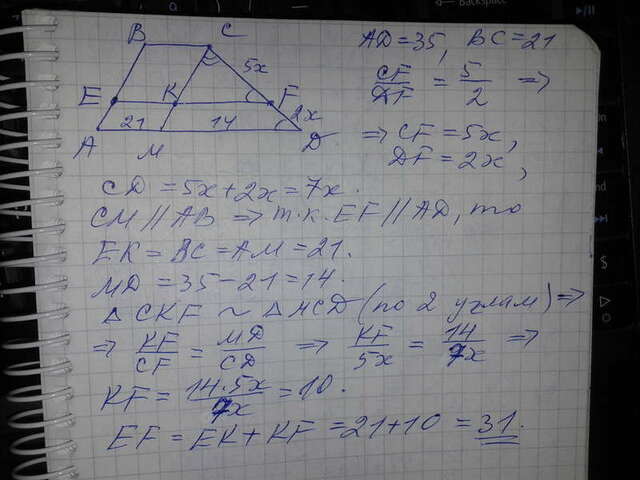 B C
AD = 35, BC = 21
5x
CF/DF = 5/2 =>
E K F
2x
21 14
A M D
=> CF = 5x,
DF = 2x,
CD = 5x + 2x = 7x.
CM // AB => т.к. EF // AD, то
EK = BC = AM = 21.
MD = 35 - 21 = 14.
△ CKF ~ △ MCD (по 2 углам) =>
=> KF/CF = MD/CD => KF/5x = 14/7x =>
KF = 14·5x/7x = 10.
EF = EK + KF = 21 + 10 = 31.